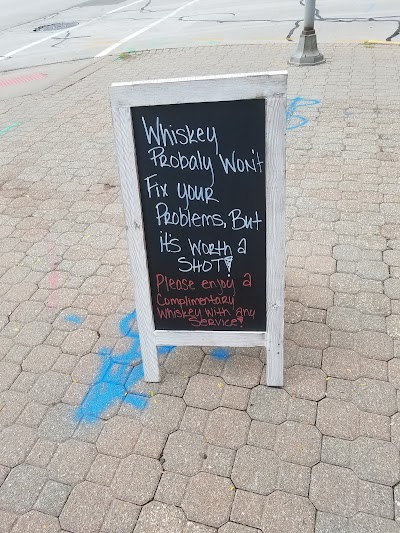 Whiskey
Probaly Won't
Fix your
Problems, But
it's worth a
SHOT!
Please enjoy a
Complimentary
Whiskey with any
Service!